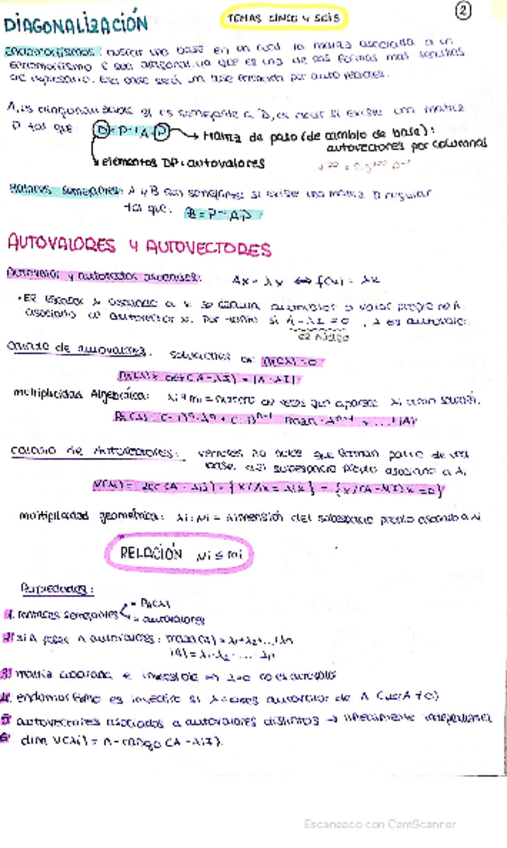 TEMAS CINCO Y SEIS
2
DIAGONALIZACIÓN
ENDOMORFISMOS: buscar una base en la cual la matriz asociada a un
endomorfismo f sea diagonal, ya que es una de sus formas más sencillas
de expresarlo. Esa base será un base formada por auto vectores.
A, es diagonalizable si es semejante a D, es decir si existe una matriz
P tal que D = P⁻¹ A P → Matriz de paso (de cambio de base):
autovectores por columnas
elementos DP: autovalores
Matrices Semejantes: A y B son semejantes si existe una matriz P regular
tal que: B = P⁻¹ AP
AUTOVALORES Y AUTOVECTORES
Autovalor y autovector asociados: Ax = λx ⟺ f(x) = λx
• El escalar λ asociado a x se denomina autovalor o valor propio de A
asociado al autovector x. Por tanto si A - λI = 0, λ es autovalor.
Cálculo de autovalores: soluciones de PA(λ) = 0
PA(λ) = det(A - λI) = |A - λI|
multiplicidad Algebraica: λi → mi = número de veces que aparece λi como solución.
Cálculo de Autovectores: vectores no nulos que forman parte de una
base del subespacio propio asociado a λ.
V(λi) = Ker(A - λiI) = {x/Ax = λix} = {x/(A - λiI)x = 0}
multiplicidad geométrica: λi: μi = dimensión del subespacio propio asociado a λi
RELACIÓN μi ≤ mi
Propiedades:
1) matrices semejantes = PA(λ)
= autovalores
2) si A posee n autovalores: traza(A) = λ1 + λ2 + ... λn
|A| = λ1 · λ2 · ... λn
3) matriz cuadrada e invertible ⟹ λ=0 no es autovalor
4) endomorfismo es inyectivo si λ=0 es autovalor de A
5) autovectores asociados a autovalores distintos → linealmente independientes
6) dim V(λi) = n - rango (A - λiI).
Escaneado con CamScanner